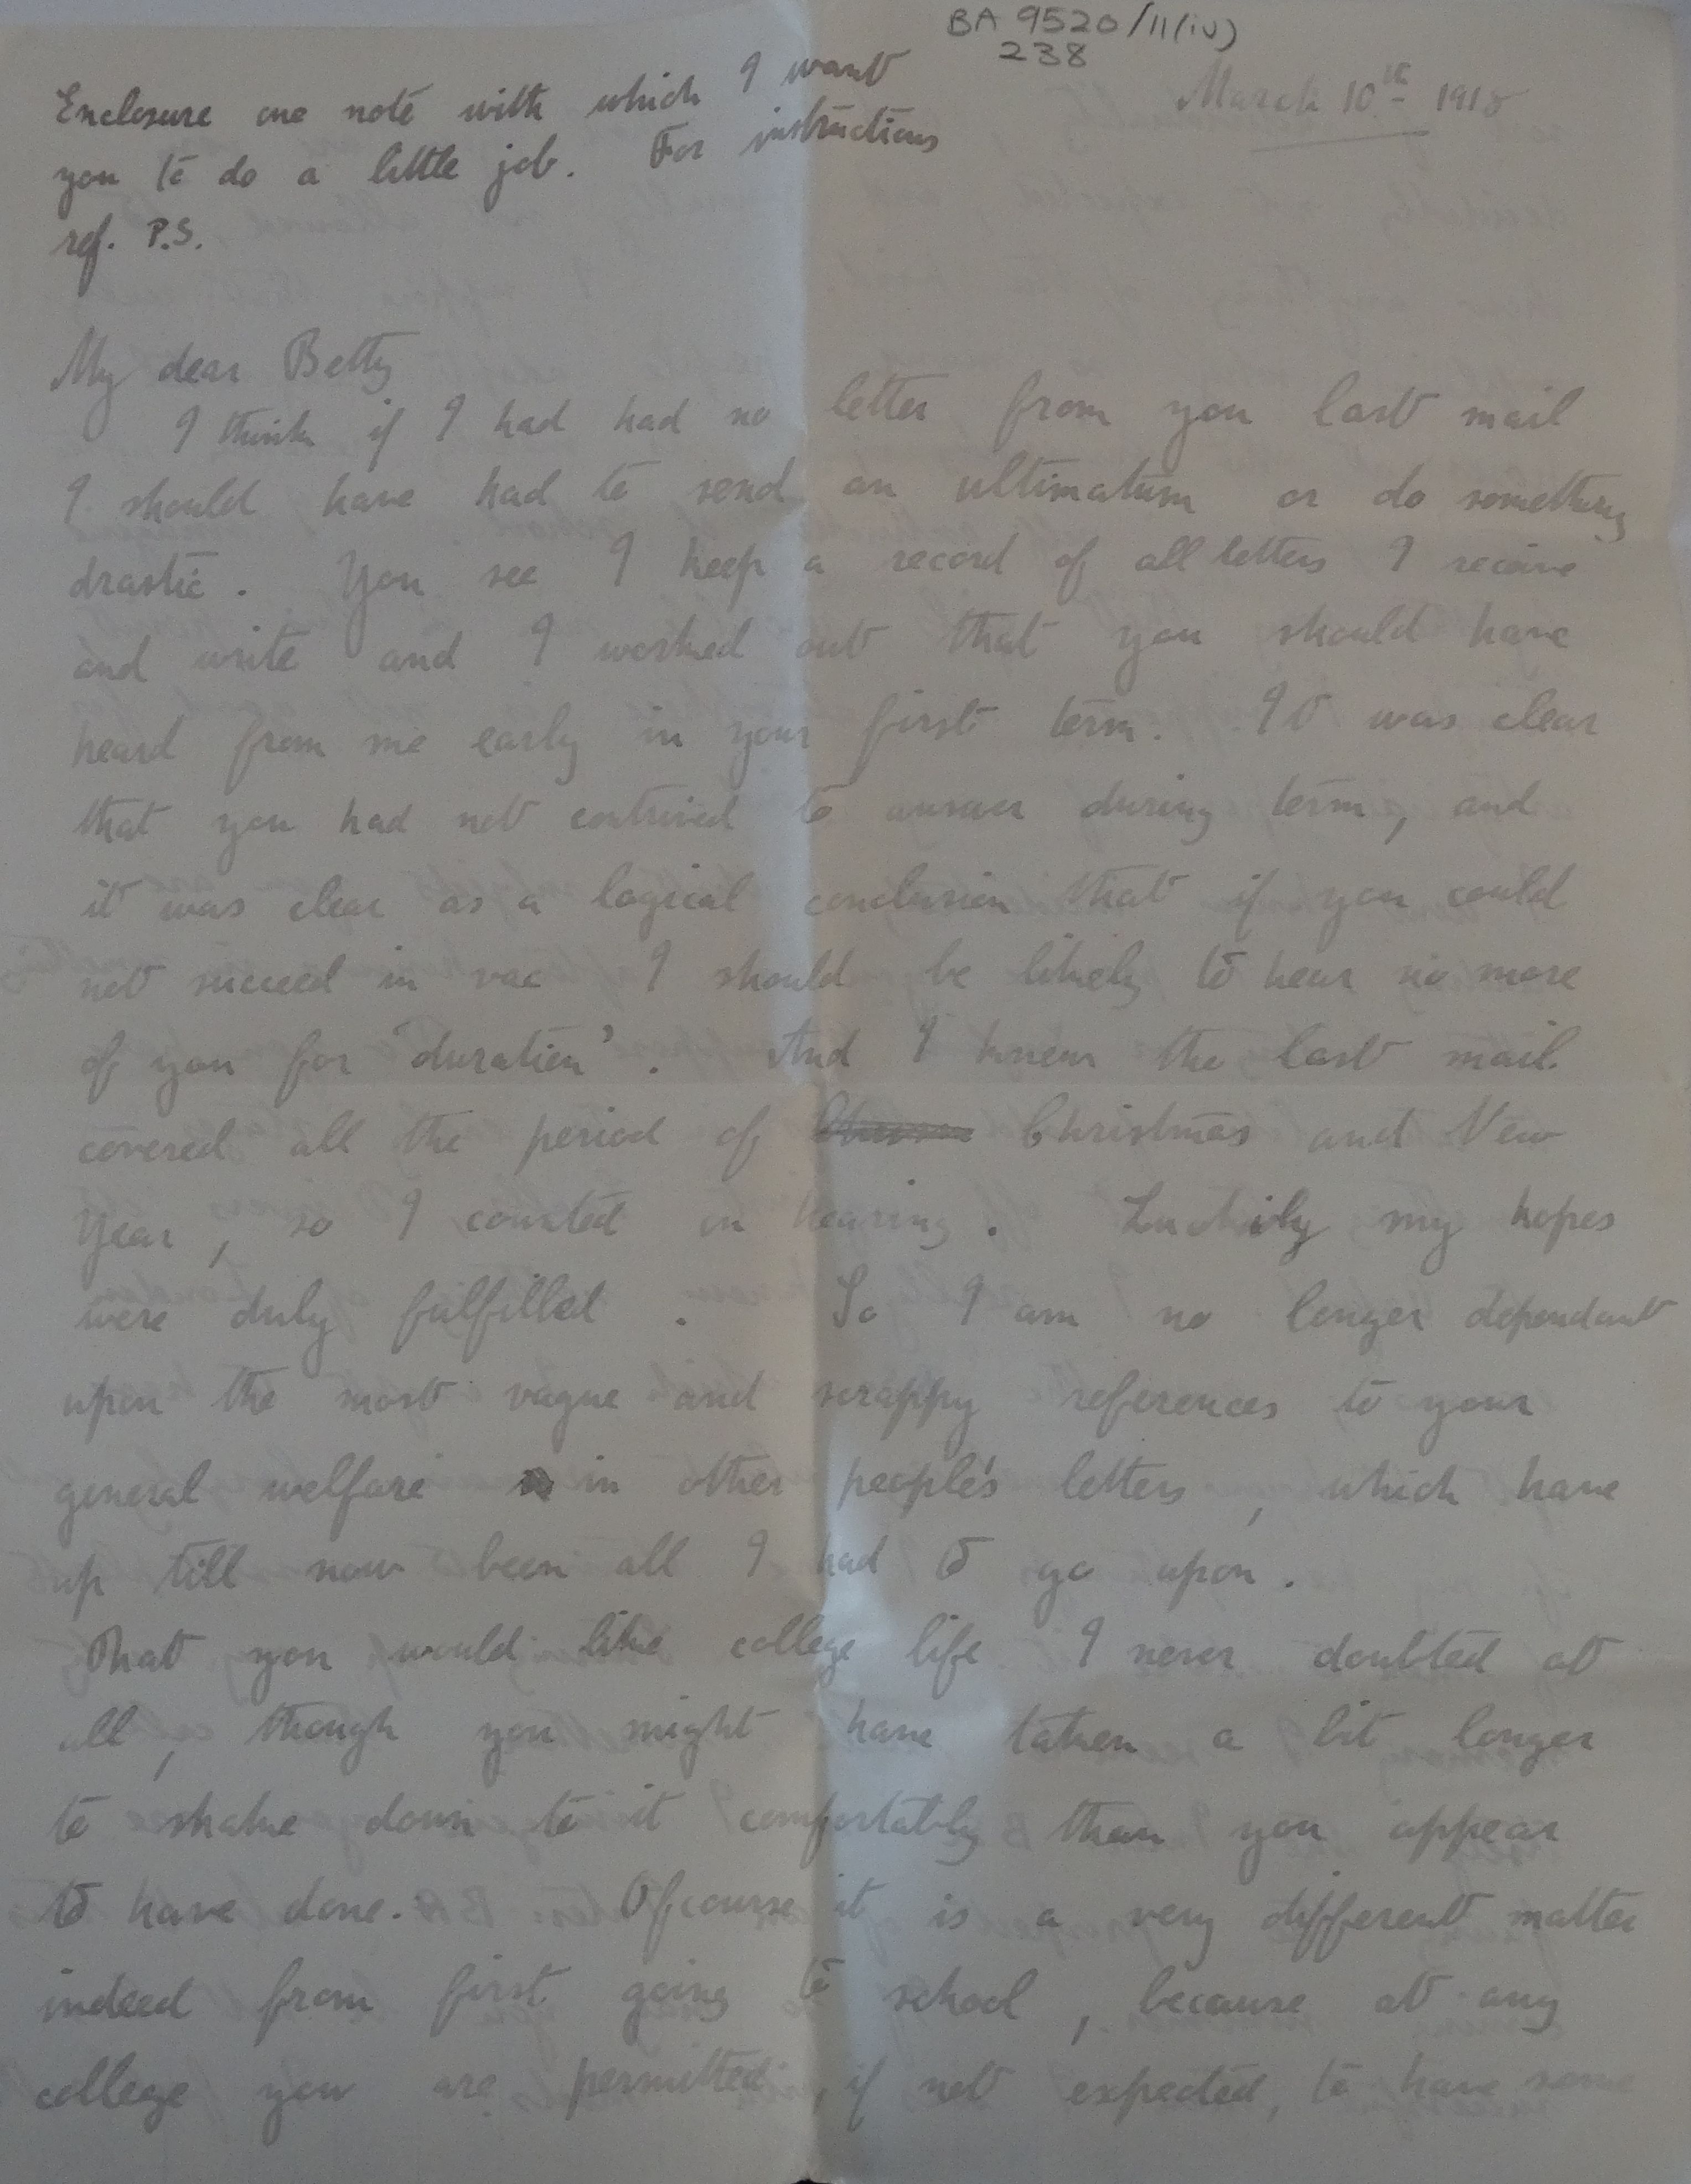 BA 9520/11(iv)
238
March 10th 1918
Enclosure one note with which I want
you to do a little job. For instructions
ref. P.S.
My dear Betty
I think if I had had no letter from you last mail
I should have had to send an ultimatum or do something
drastic. You see I keep a record of all letters I receive
and write and I worked out that you should have
heard from me early in your first term. It was clear
that you had not contrived to answer during term, and
it was clear as a logical conclusion that if you could
not succeed in vac I should be likely to hear no more
of you for 'duration'. And I knew the last mail
covered all the period of Christmas and New
Year, so I counted on hearing. Luckily my hopes
were duly fulfilled. So I am no longer dependant
upon the most vague and scrappy references to your
general welfare in other people's letters, which have
up till now been all I had to go upon.
That you would like college life I never doubted at
all, though you might have taken a bit longer
to shake down to it comfortably than you appear
to have done. Ofcourse it is a very different matter
indeed from first going to school, because at any
college you are permitted, if not expected, to have some